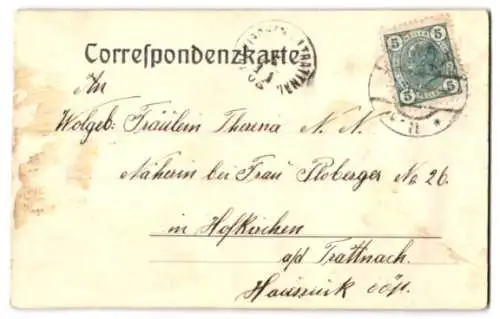 Correspondenzkarte
5 5
5 5
An
Wolgeb: Fräulein Theresia N. N.
Näherin bei Frau Ploberger No 26
in Hofkirchen
a/d Trattnach.
Hausruck